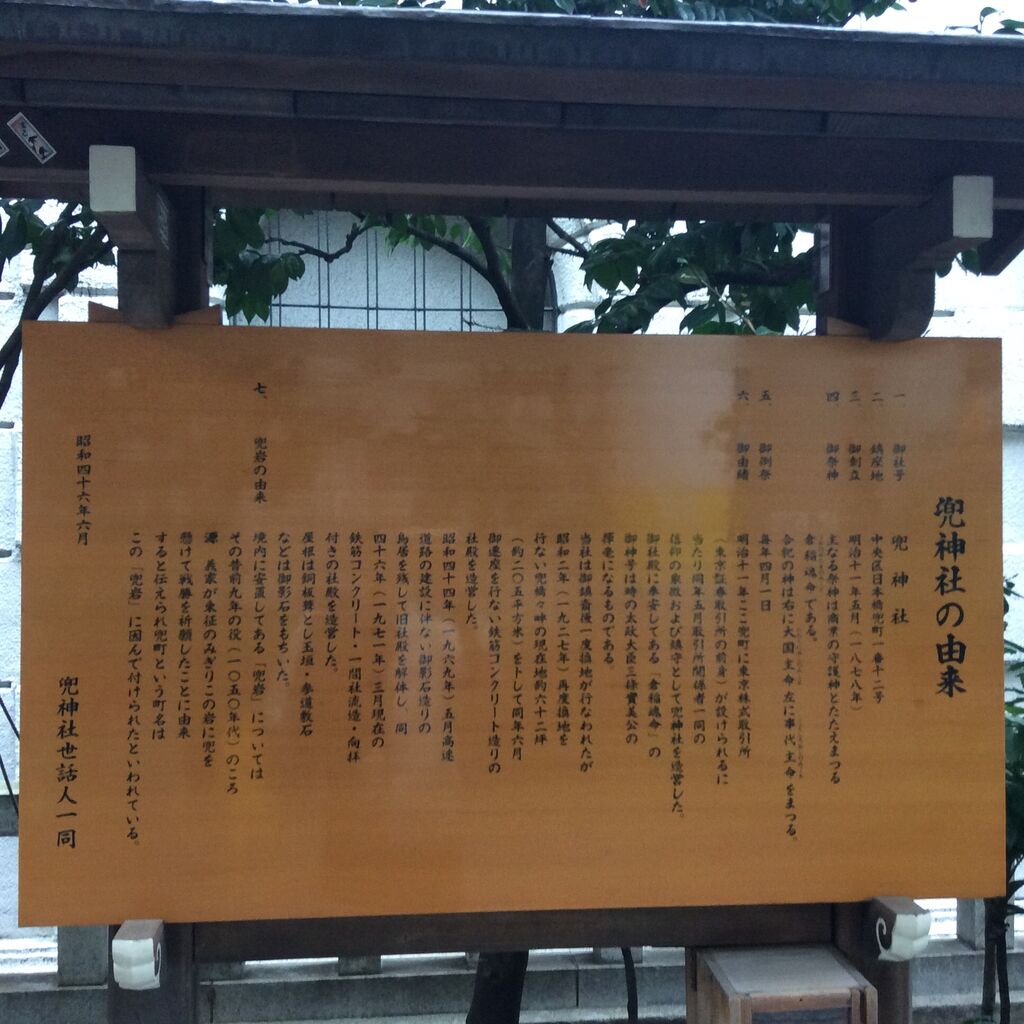 兜神社の由来
一、 御社号 兜神社
二、 鎮座地 中央区日本橋兜町一番十二号
三、 御創立 明治十一年五月(一八七八年)
四、 御祭神 主なる祭神は商業の守護神とたたえまつる
倉稲魂命である。
合祀の神は右に大国主命左に事代主命をまつる。
五、 御例祭 毎年四月一日
六、 御由緒 明治十一年ここ兜町に東京株式取引所
(東京証券取引所の前身)が設けられるに
当たり同年五月取引所関係者一同の
信仰の象徴および鎮守として兜神社を造営した。
御社殿に奉安してある「倉稲魂命」の
御神号は時の太政大臣三條實美公の
揮毫になるものである
当社は御鎮斎後一度換地が行なわれたが
昭和二年(一九二七年)再度換地を
行ない兜橋々畔の現在地約六十二坪
(約二〇五平方米)をトして同年六月
御遷座を行ない鉄筋コンクリート造りの
社殿を造営した。
昭和四十四年(一九六九年)五月高速
道路の建設に伴ない御影石造りの
鳥居を残して旧社殿を解体し 同
四十六年(一九七一年)三月現在の
鉄筋コンクリート・一間社流造・向拝
付きの社殿を造営した。
屋根は銅板葺とし玉垣・参道敷石
などは御影石をもちいた。
七、 兜岩の由来 境内に安置してある「兜岩」については
その昔前九年の役(一〇五〇年代)のころ
源 義家が東征のみぎりこの岩に兜を
懸けて戦勝を祈願したことに由来
すると伝えられ兜町という町名は
この「兜岩」に因んで付けられたといわれている。
昭和四十六年六月
兜神社世話人一同